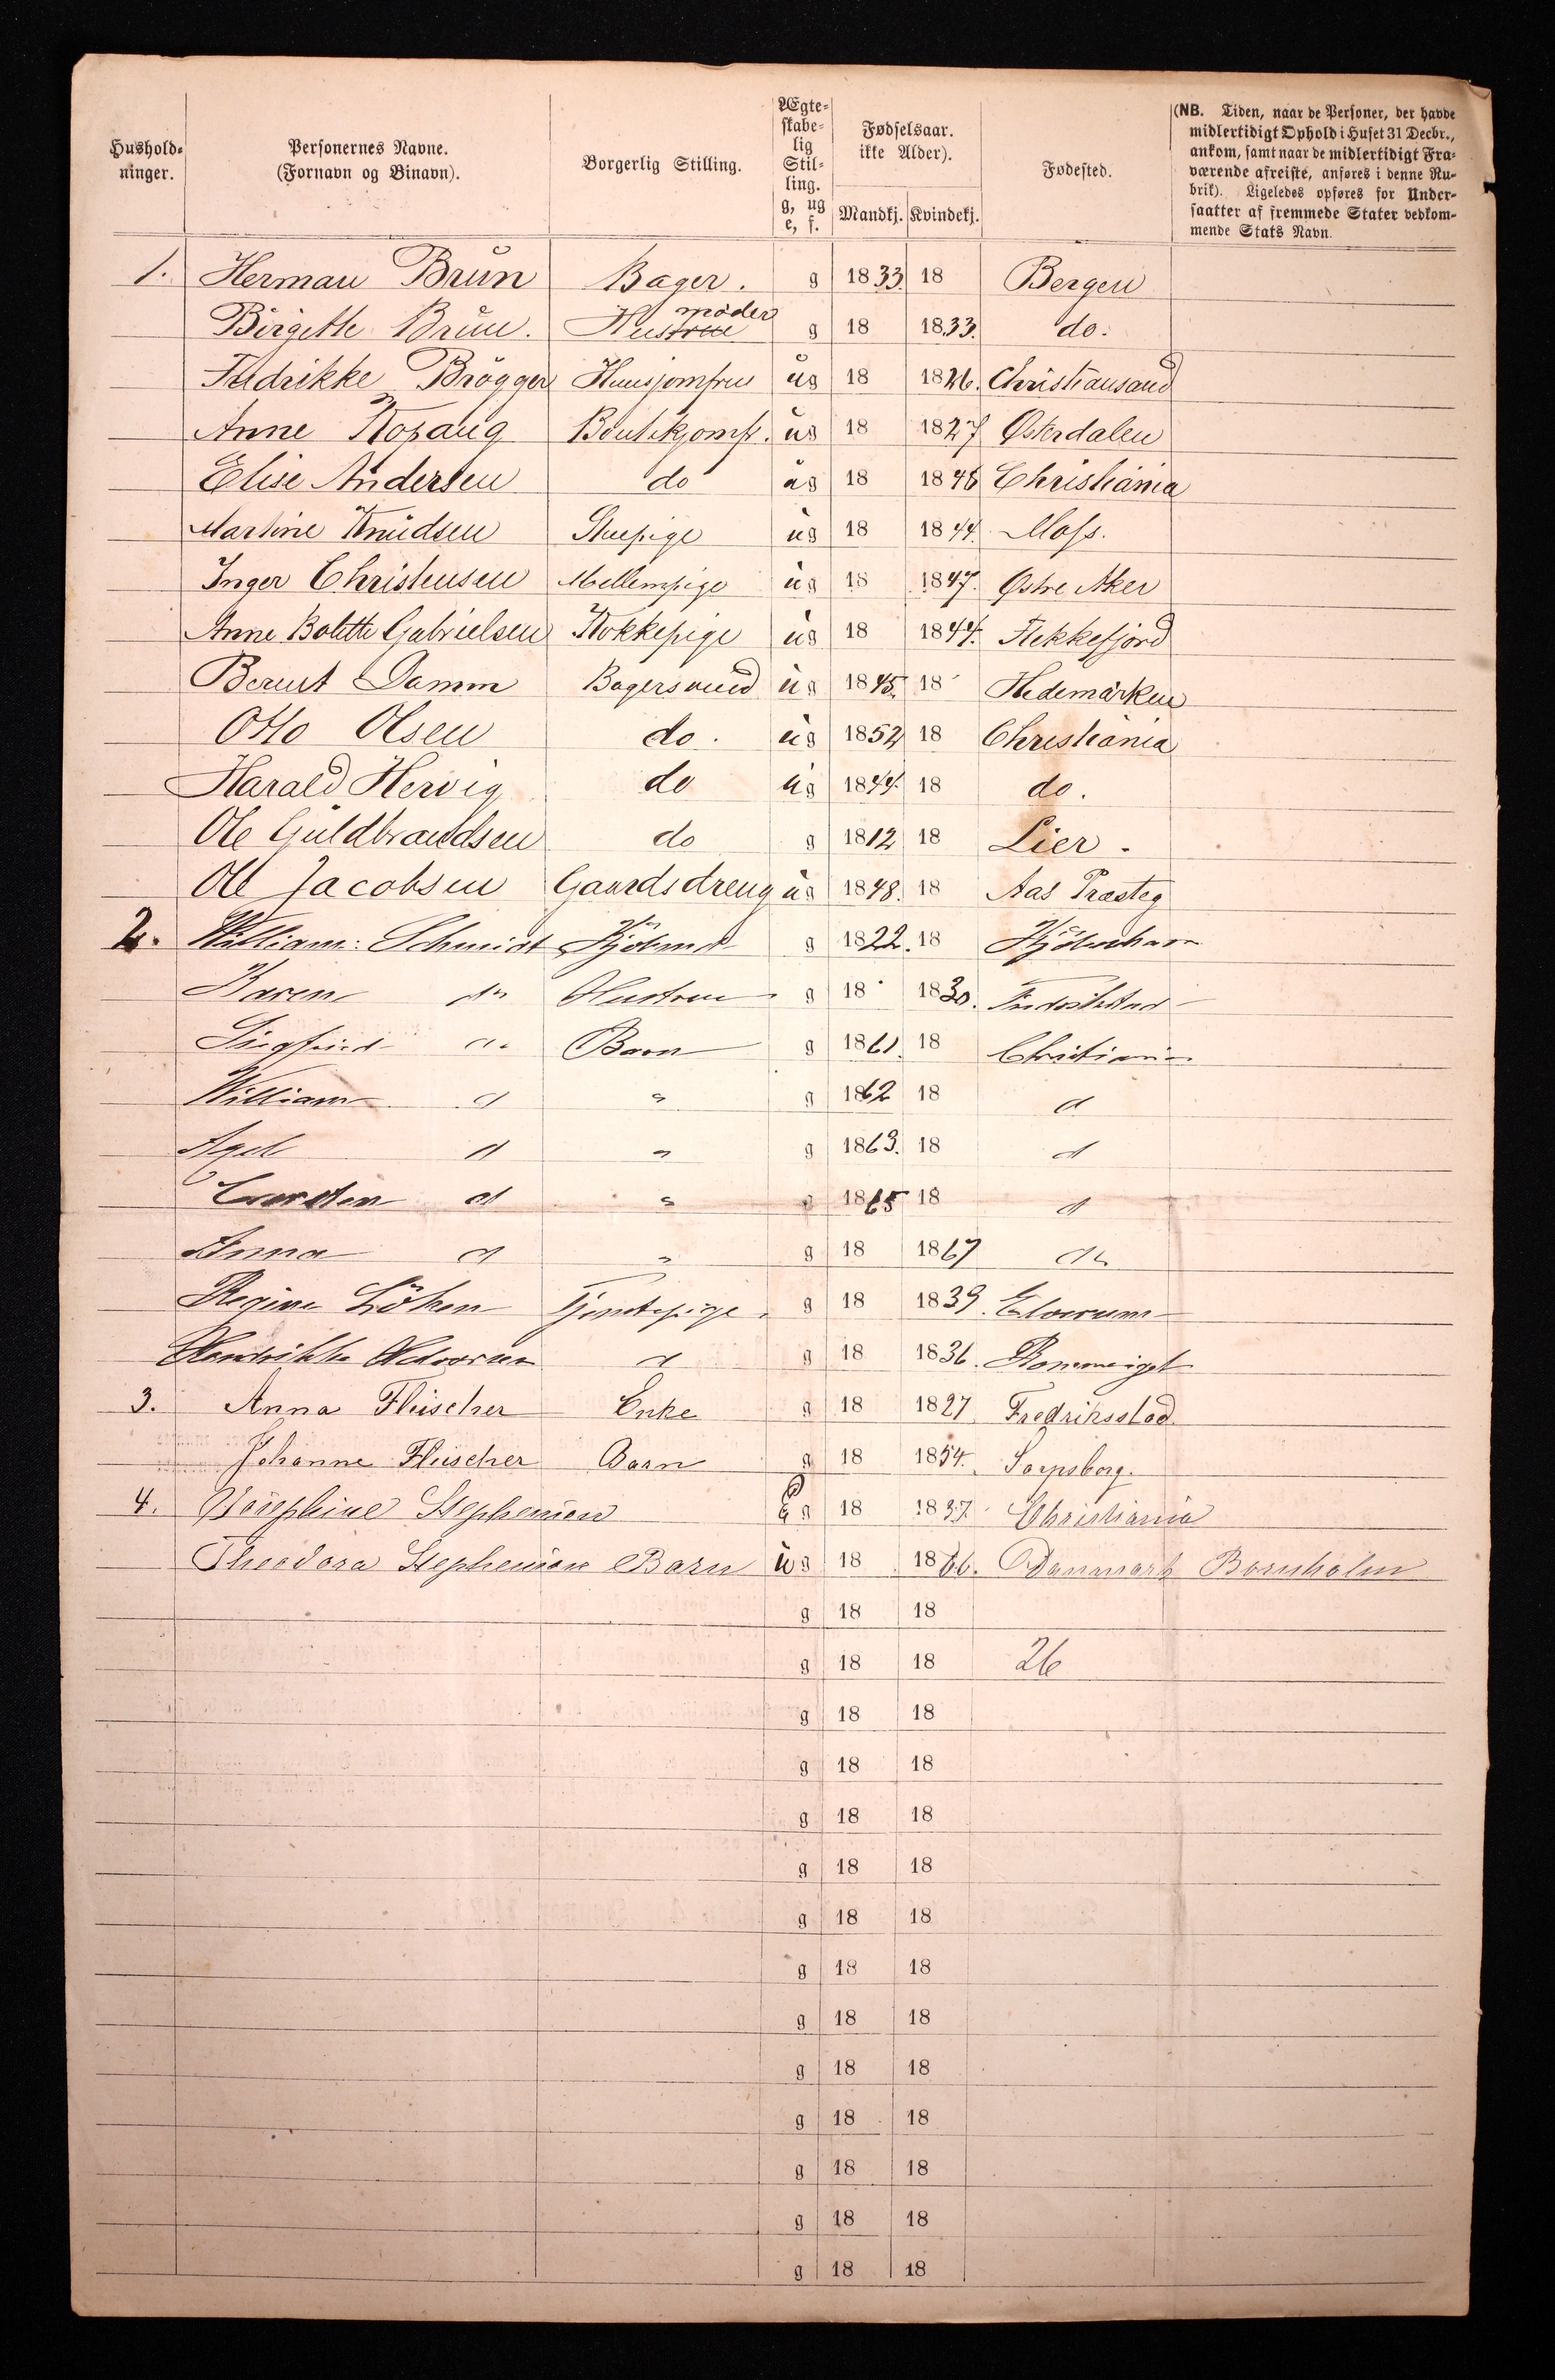 Hushold-ninger. Personernes Navne. (Fornavn og Binavn). Borgerlig Stilling. Ægte-skabe-lig Stil-ling. g, ug e, f. Fødselsaar. ikke Alder). Mandkj. Kvindekj. Fødested. (NB. Tiden, naar de Personer, der havde midlertidigt Ophold i Huset 31 Decbr., ankom, samt naar de midlertidigt Fra-værende afreiste, anføres i denne Ru-brik). Ligeledes opføres for Under-saatter af fremmede Stater vedkom-mende Stats Navn.
1. Herman Brun Bager. g 1833. 18 Bergen
Birgitte Brun. Hustrue moder g 18 1833. do.
Fredrikke Brøgger Huusjomfrue ug 18 1826. Christiansand
Anne Kopang Boutikjomf. ug 18 1827 Østerdalen
Elise Andersen do ug 18 1848 Christiania
Martine Knudsen Stuepige ug 18 1844. Moss.
Inger Christensen Mellempige ug 18 1847. Østre Aker
Anne Bolette Gabrielsen Kokkepige ug 18 1844. Flekkefjord
Berent Damm Bagersvend ug 1845. 18 Hedemarken
Otto Olsen do. ug 1852 18 Christiania
Harald Hervig do ug 1844. 18 do.
Ole Guldbrandsen do g 1812 18 Lier.
Ole Jacobsen Gaardsdreng ug 1848. 18 Aas Præsteg
2. William: Schmidt Kjøbmd g 1822. 18 Kjøbenhavn
Karen do Hustrue g 18 1830. Fredrikstad
Siegfried do Barn g 1861. 18 Christiania
William d " g 1862 18 d
Axel d " g 1863. 18 d
Carsten d " g 1865 18 d
Anna d " g 18 1867 do
Regine Löken Tjenstepige. g 18 1839. Elverum
Hendrikke d g 18 1836. Rommeriget
3. Anna Fleischer Enke g 18 1827 Fredriksstad
Johanne Fleischer Barn g 18 1854. Sarpsborg.
4. Josephine Stephenson E g 18 1837. Christiania
Theodora Stephenson Barn ug 18 1866. Danmark Bornholm
g 18 18
g 18 18 26
g 18 18
g 18 18
g 18 18
g 18 18
g 18 18
g 18 18
g 18 18
g 18 18
g 18 18
g 18 18
g 18 18
g 18 18